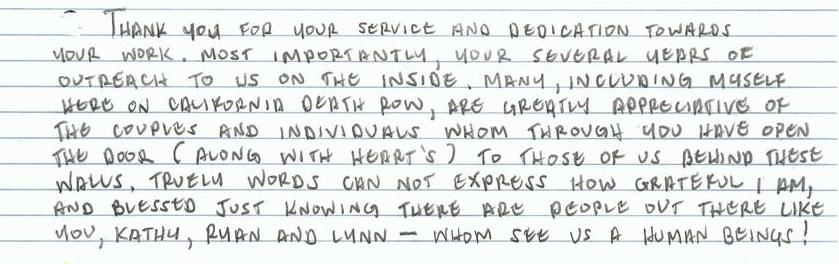 THANK YOU FOR YOUR SERVICE AND DEDICATION TOWARDS
YOUR WORK. MOST IMPORTANTLY, YOUR SEVERAL YEARS OF
OUTREACH TO US ON THE INSIDE. MANY, INCLUDING MYSELF
HERE ON CALIFORNIA DEATH ROW, ARE GREATLY APPRECIATIVE OF
THE COUPLES AND INDIVIDUALS WHOM THROUGH YOU HAVE OPEN
THE DOOR (ALONG WITH HEART'S) TO THOSE OF US BEHIND THESE
WALLS. TRUELY WORDS CAN NOT EXPRESS HOW GRATEFUL I AM,
AND BLESSED JUST KNOWING THERE ARE PEOPLE OUT THERE LIKE
YOU, KATHY, RYAN AND LYNN – WHOM SEE US A HUMAN BEINGS!